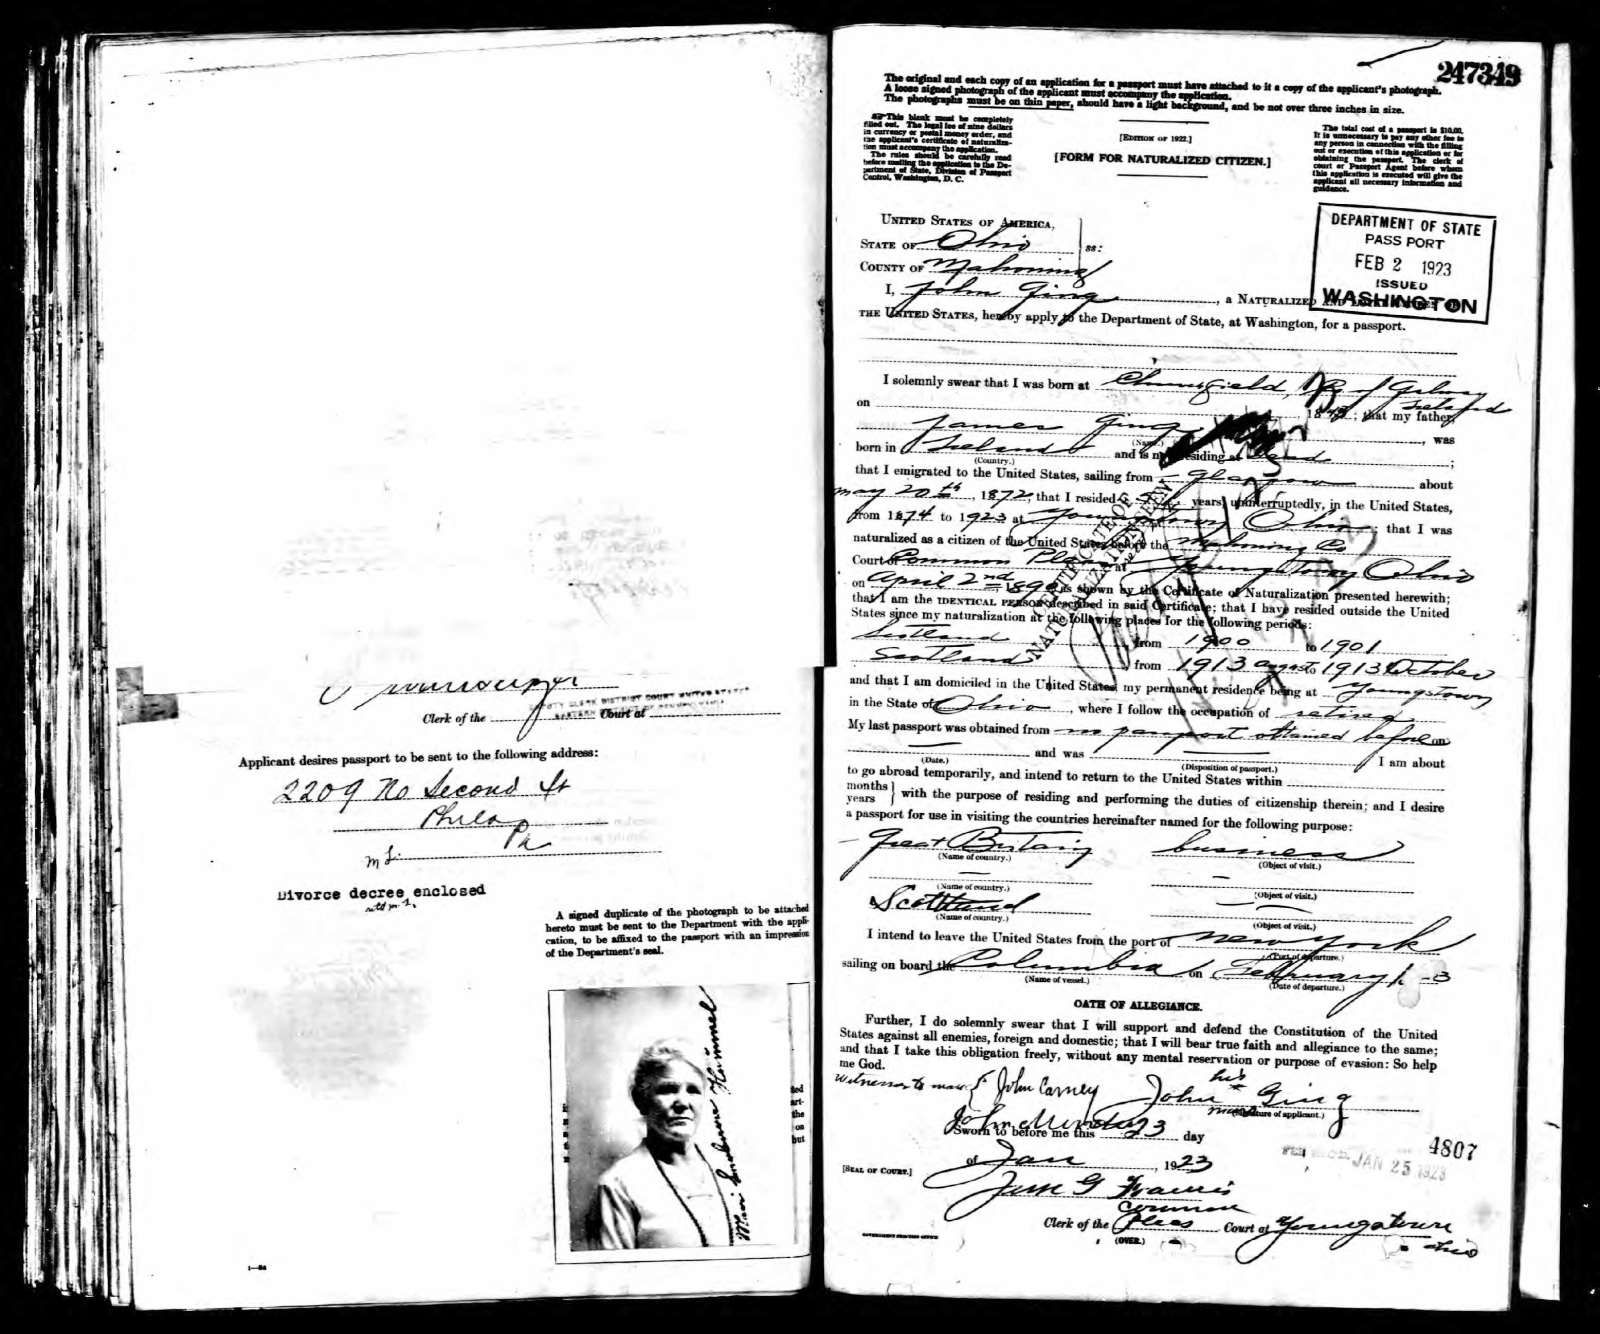 Clerk of the Court at
DEPUTY CLERK DISTRICT COURT UNITED STATES
EASTERN DISTRICT OF PENNSYLVANIA
Applicant desires passport to be sent to the following address:
2209 No Second St
Phila
Pa
Divorce decree enclosed
A signed duplicate of the photograph to be attached
hereto must be sent to the Department with the appli-
cation, to be affixed to the passport with an impression
of the Department's seal.
247349
The original and each copy of an application for a passport must have attached to it a copy of the applicant's photograph.
A loose signed photograph of the applicant must accompany the application.
The photographs must be on thin paper, should have a light background, and be not over three inches in size.
This blank must be completely
filled out. The legal fee of nine dollars
in currency or postal money order, and
the applicant's certificate of naturaliza-
tion must accompany the application.
The rules should be carefully read
before mailing the application to the De-
partment of State, Division of Passport
Control, Washington, D. C.
[EDITION OF 1922.]
[FORM FOR NATURALIZED CITIZEN.]
The total cost of a passport is $10.00.
It is unnecessary to pay any other fee to
any person in connection with the filling
out or execution of this application or for
obtaining the passport. The clerk of
court or Passport Agent before whom
this application is executed will give the
applicant all necessary information and
guidance.
DEPARTMENT OF STATE
PASSPORT
FEB 2 1923
ISSUED
WASHINGTON
UNITED STATES OF AMERICA,
STATE OF Ohio ss:
COUNTY OF Mahoning
I, John Ging, a NATURALIZED
THE UNITED STATES, hereby apply to the Department of State, at Washington, for a passport.
I solemnly swear that I was born at Co. of Galway
Ireland
on 18; that my father,
James Ging, was
(Name.)
born in Ireland and is now residing at
(Country.)
that I emigrated to the United States, sailing from Glasgow about
May 20th, 1872; that I resided years, uninterruptedly, in the United States,
from 1874 to 1923 at Youngstown Ohio; that I was
naturalized as a citizen of the United States before the Mahoning Co
Court of Common Pleas at Youngstown Ohio
on April 2nd, 1890, as shown by the Certificate of Naturalization presented herewith;
that I am the IDENTICAL PERSON described in said Certificate; that I have resided outside the United
States since my naturalization at the following places for the following periods:
Scotland from 1900 to 1901
Scotland from 1913 August to 1913 October
and that I am domiciled in the United States, my permanent residence being at Youngstown
in the State of Ohio, where I follow the occupation of retired
My last passport was obtained from no passport obtained before on
and was I am about
(Date.) (Disposition of passport.)
to go abroad temporarily, and intend to return to the United States within
months
years with the purpose of residing and performing the duties of citizenship therein; and I desire
a passport for use in visiting the countries hereinafter named for the following purpose:
Great Britain business
(Name of country.) (Object of visit.)
(Name of country.) (Object of visit.)
Scotland
(Name of country.) (Object of visit.)
I intend to leave the United States from the port of New York
(Port of departure.)
sailing on board the Columbia on February
(Name of vessel.) (Date of departure.)
OATH OF ALLEGIANCE.
Further, I do solemnly swear that I will support and defend the Constitution of the United
States against all enemies, foreign and domestic; that I will bear true faith and allegiance to the same;
and that I take this obligation freely, without any mental reservation or purpose of evasion: So help
me God.
Witnesses to mark John Carney
his
John Ging
mark
(Signature of applicant.)
Sworn to before me this 23 day
of Jan, 1923
4807
JAN 25 1923
[SEAL OF COURT.]
Common
Clerk of the Pleas Court at Youngstown
Ohio
(OVER.)
GOVERNMENT PRINTING OFFICE